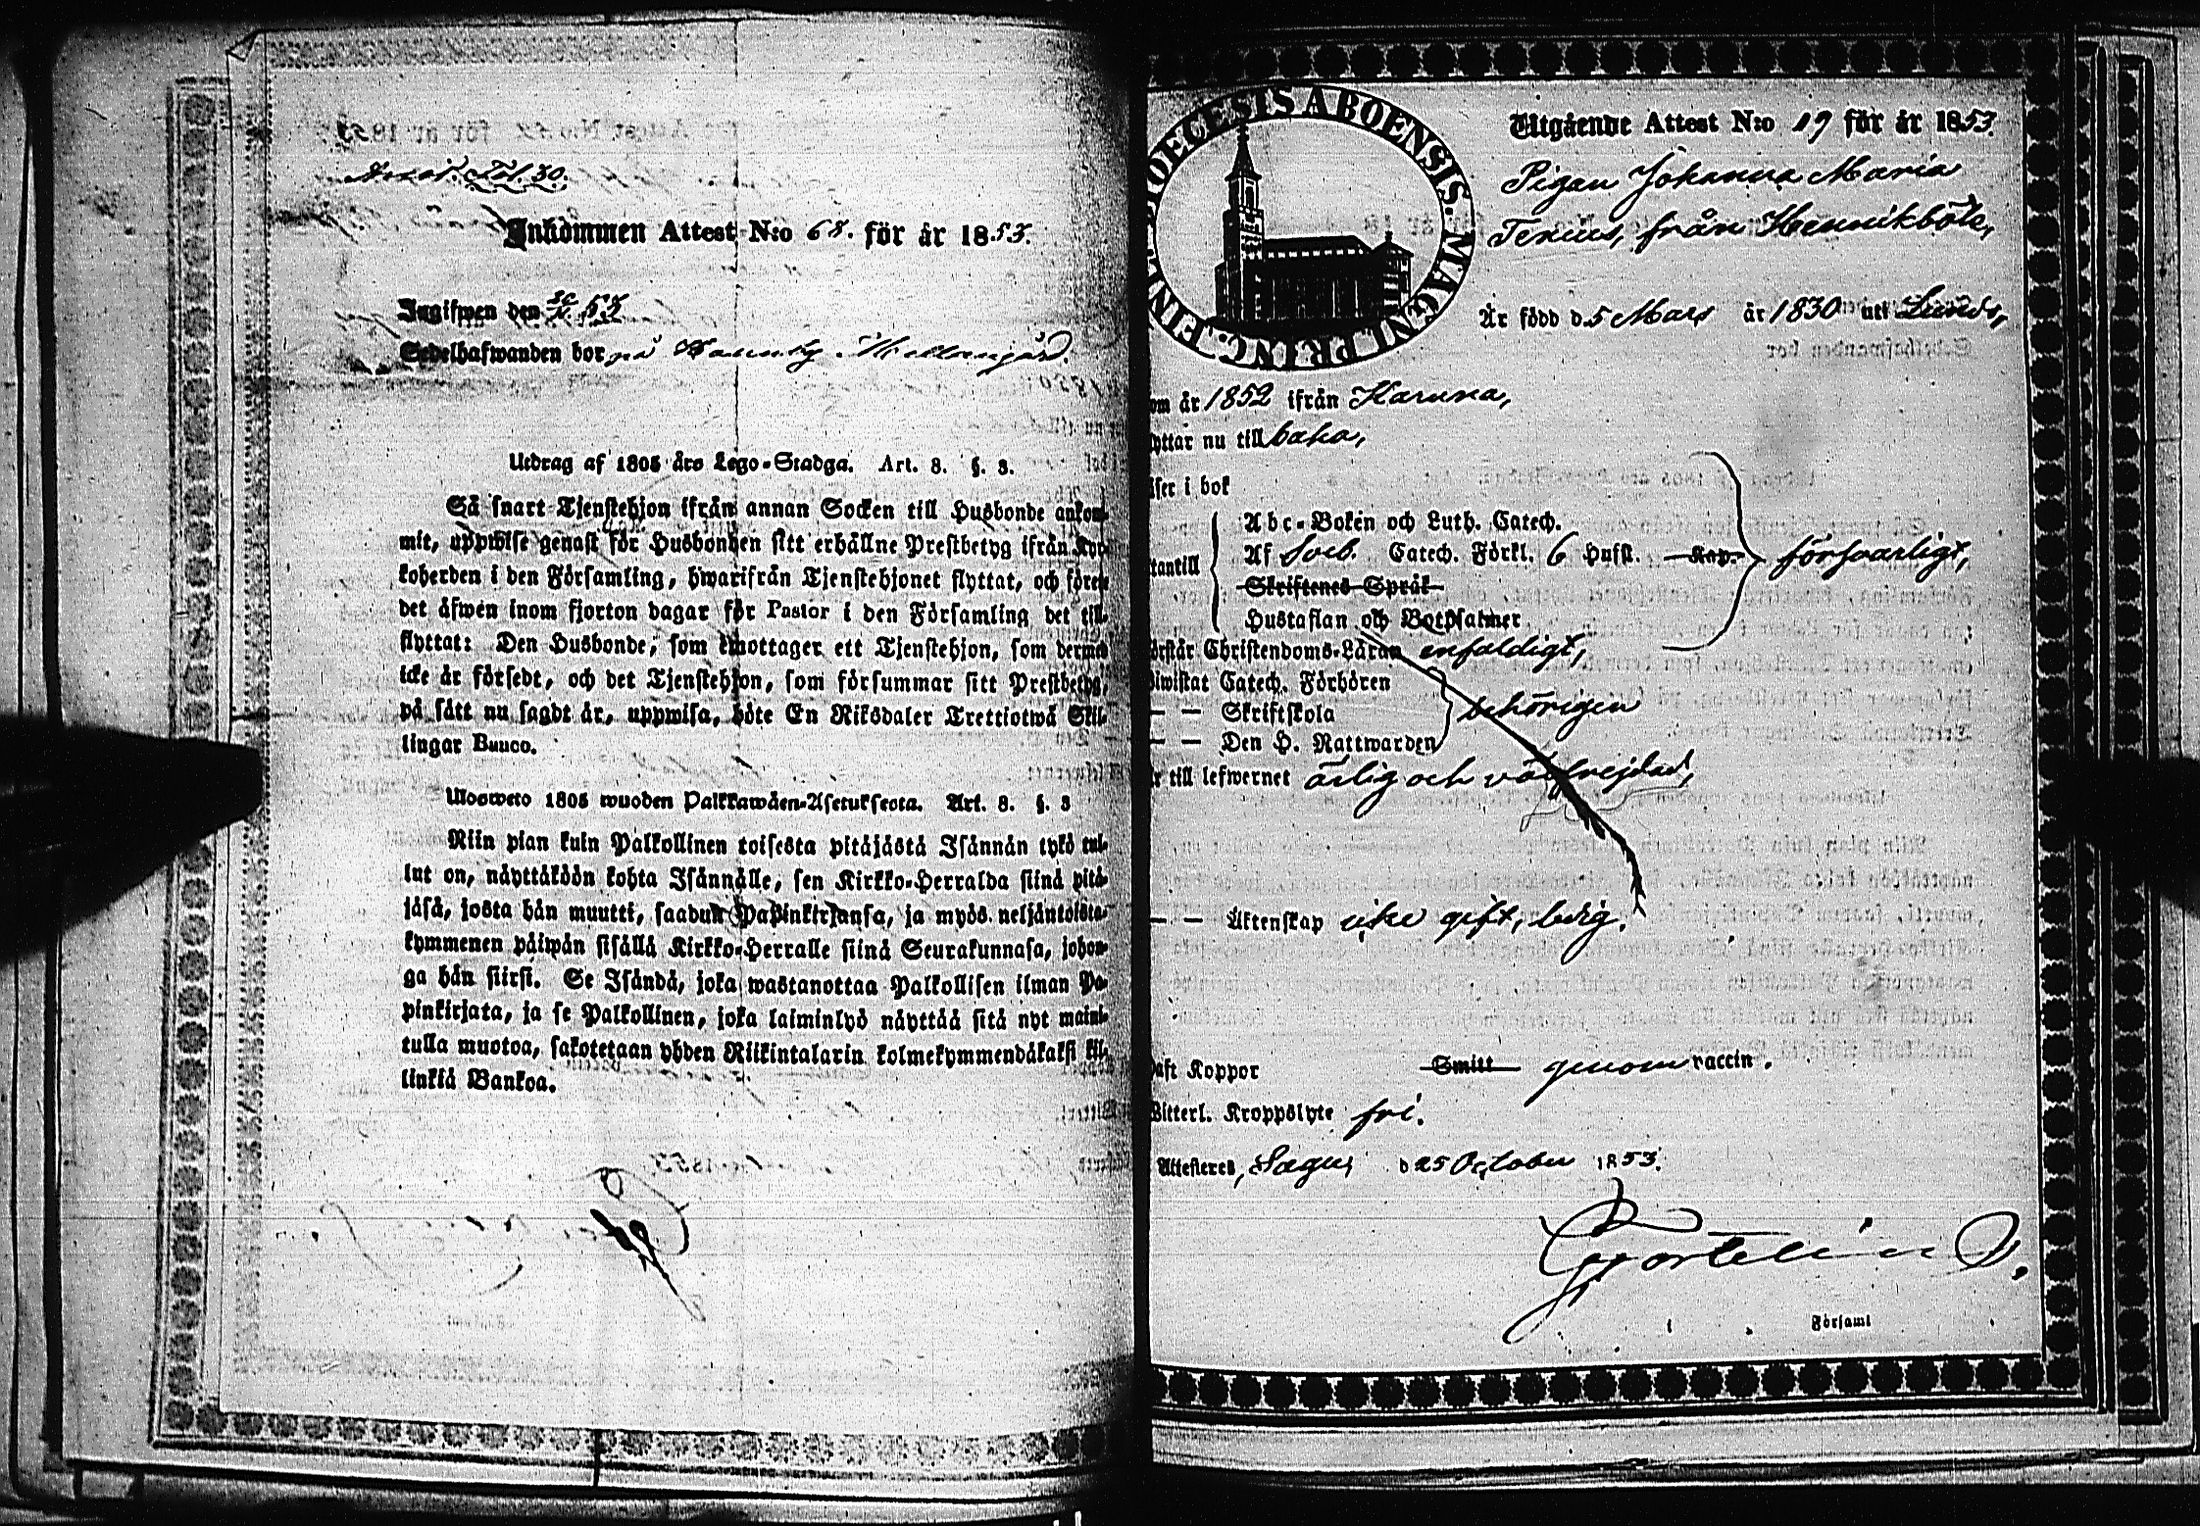 Fol. 30.
Inkommen Attest N:o 68. för år 1853.
Ingifwen den 53
Sedelhafwanden bor på
Utdrag af 1805 års Lego-Stadga. Art. 8. §. 3.
Så snart Tjenstehjon ifrån annan Socken till Husbonde ankom-
mit, uppwise genast för Husbonden sitt erhållne Prestbetyg ifrån Kyr-
koherden i den Församling, hwarifrån Tjenstehjonet flyttat, och förete
det äfwen inom fjorton dagar för Pastor i den Församling det till-
flyttat: Den Husbonde, som emottager ett Tjenstehjon, som dermed
icke är försedt, och det Tjenstehjon, som försummar sitt Prestbetyg,
på sätt nu sagdt är, uppwisa, böte En Riksdaler Trettiotwå Skil-
lingar Banco.
Ulosweto 1805 wuoden Palkkawäen-Asetuksesta. Art. 8. §. 3
Niin pian kuin Palkollinen toisesta pitäjästä Isännän tykö tul-
lut on, näyttäköön kohta Isännälle, sen Kirkko-Herralda siinä pitä-
jäsä, josta hän muutti, saadun Papinkirjansa, ja myös neljäntoista-
kymmenen päiwän sisällä Kirkko-Herralle siinä Seurakunnasa, johon-
ga hän siirsi. Se Isändä, joka wastanottaa Palkollisen ilman Pa-
pinkirjata, ja se Palkollinen, joka laiminlyö näyttää sitä nyt maini-
tulla muotoa, sakotetaan yhden Riikintalarin kolmekymmendäkaksi kil-
linkiä Bankoa.
DIOECESIS ABOENSIS. MAGNI PRINC. FINL.
Utgående Attest N:o 19 för år 1853.
Pigan Johanna Maria
Tenius, från Henrikböle,
Är född d. 5 Mars år 1830 uti Lunds,
om år 1852 ifrån Karuna,
yttar nu till baka,
äser i bok
Abc-Boken och Luth. Catech.
tantill Af Sveb. Catech. Förkl. 6 Hufst. Kap. försvarligt,
Skriftenes Språk
Hustaflan och Botpsalmer
örstår Christendoms-Läran enfaldigt,
iwistat Catech. Förhören
— — Skriftskola behörigen
— — Den H. Nattwarden
r till lefwernet ärlig och välfrejdad,
— — Äktenskap icke gift, ledig.
aft Koppor Smitt genom vaccin.
Witterl. Kroppslyte fri.
Attesteras, Sagu, d 25 October 1853.
i Församl